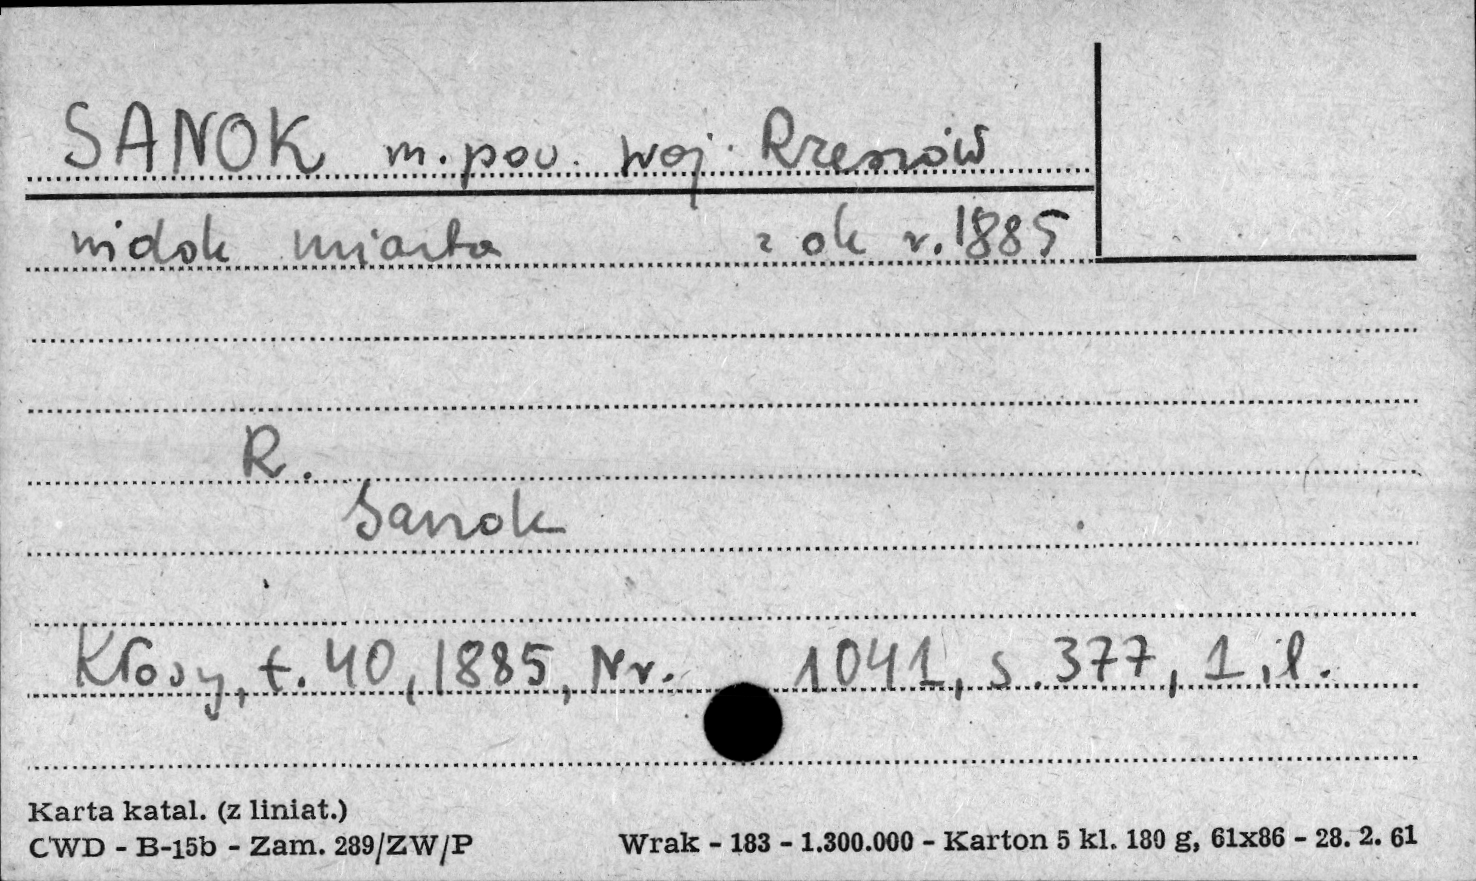 SANOK m. pow. woj. Rzeszów
widok miasta z ok r. 1885
R.
Sanok
Kłosy, t. 40, 1885, Nr. 1041, s. 377, 1 il.
Karta katal. (z liniat.)
CWD - B-15b - Zam. 289/ZW/P
Wrak - 183 - 1.300.000 - Karton 5 kl. 180 g, 61x86 - 28. 2. 61